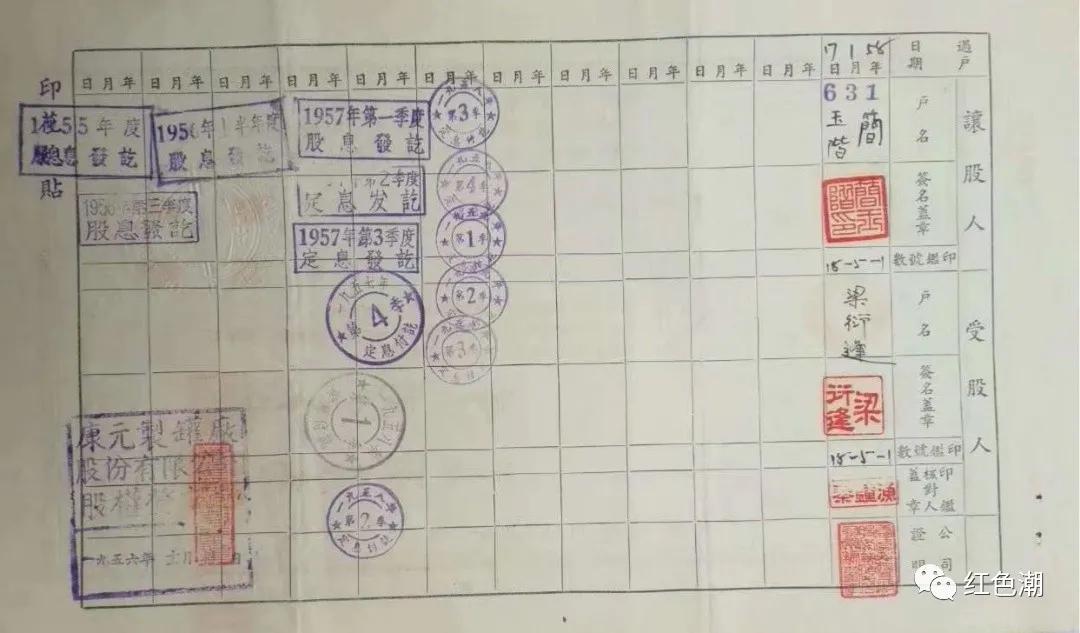 過戶
日期
17 1 56
日月年
日月年
日月年
日月年
日月年
日月年
日月年
日月年
日月年
日月年
日月年
日月年
讓股人
戶名
631
簡玉階
簽名蓋章
簡玉階印
印鑑號數
15-5-1
受股人
戶名
梁衍逢
簽名蓋章
梁衍逢
印鑑號數
15-5-1
印鑑核對人蓋章
公司證明
1957年第一季度
股息發訖
第2季度
定息发訖
1957年第3季度
定息發訖
一九五七年
第4季
定息付訖
一九五八年
1
一九五八年
第2季
定息付訖
一九五八年
第3季
第4季
第1季
第2季
第3季
印
貼
55年度
股息發訖
1956年上半年度
股息發訖
1956年第三季度
股息發訖
康元製罐廠
股份有限公
股權
一九五六年
红色潮